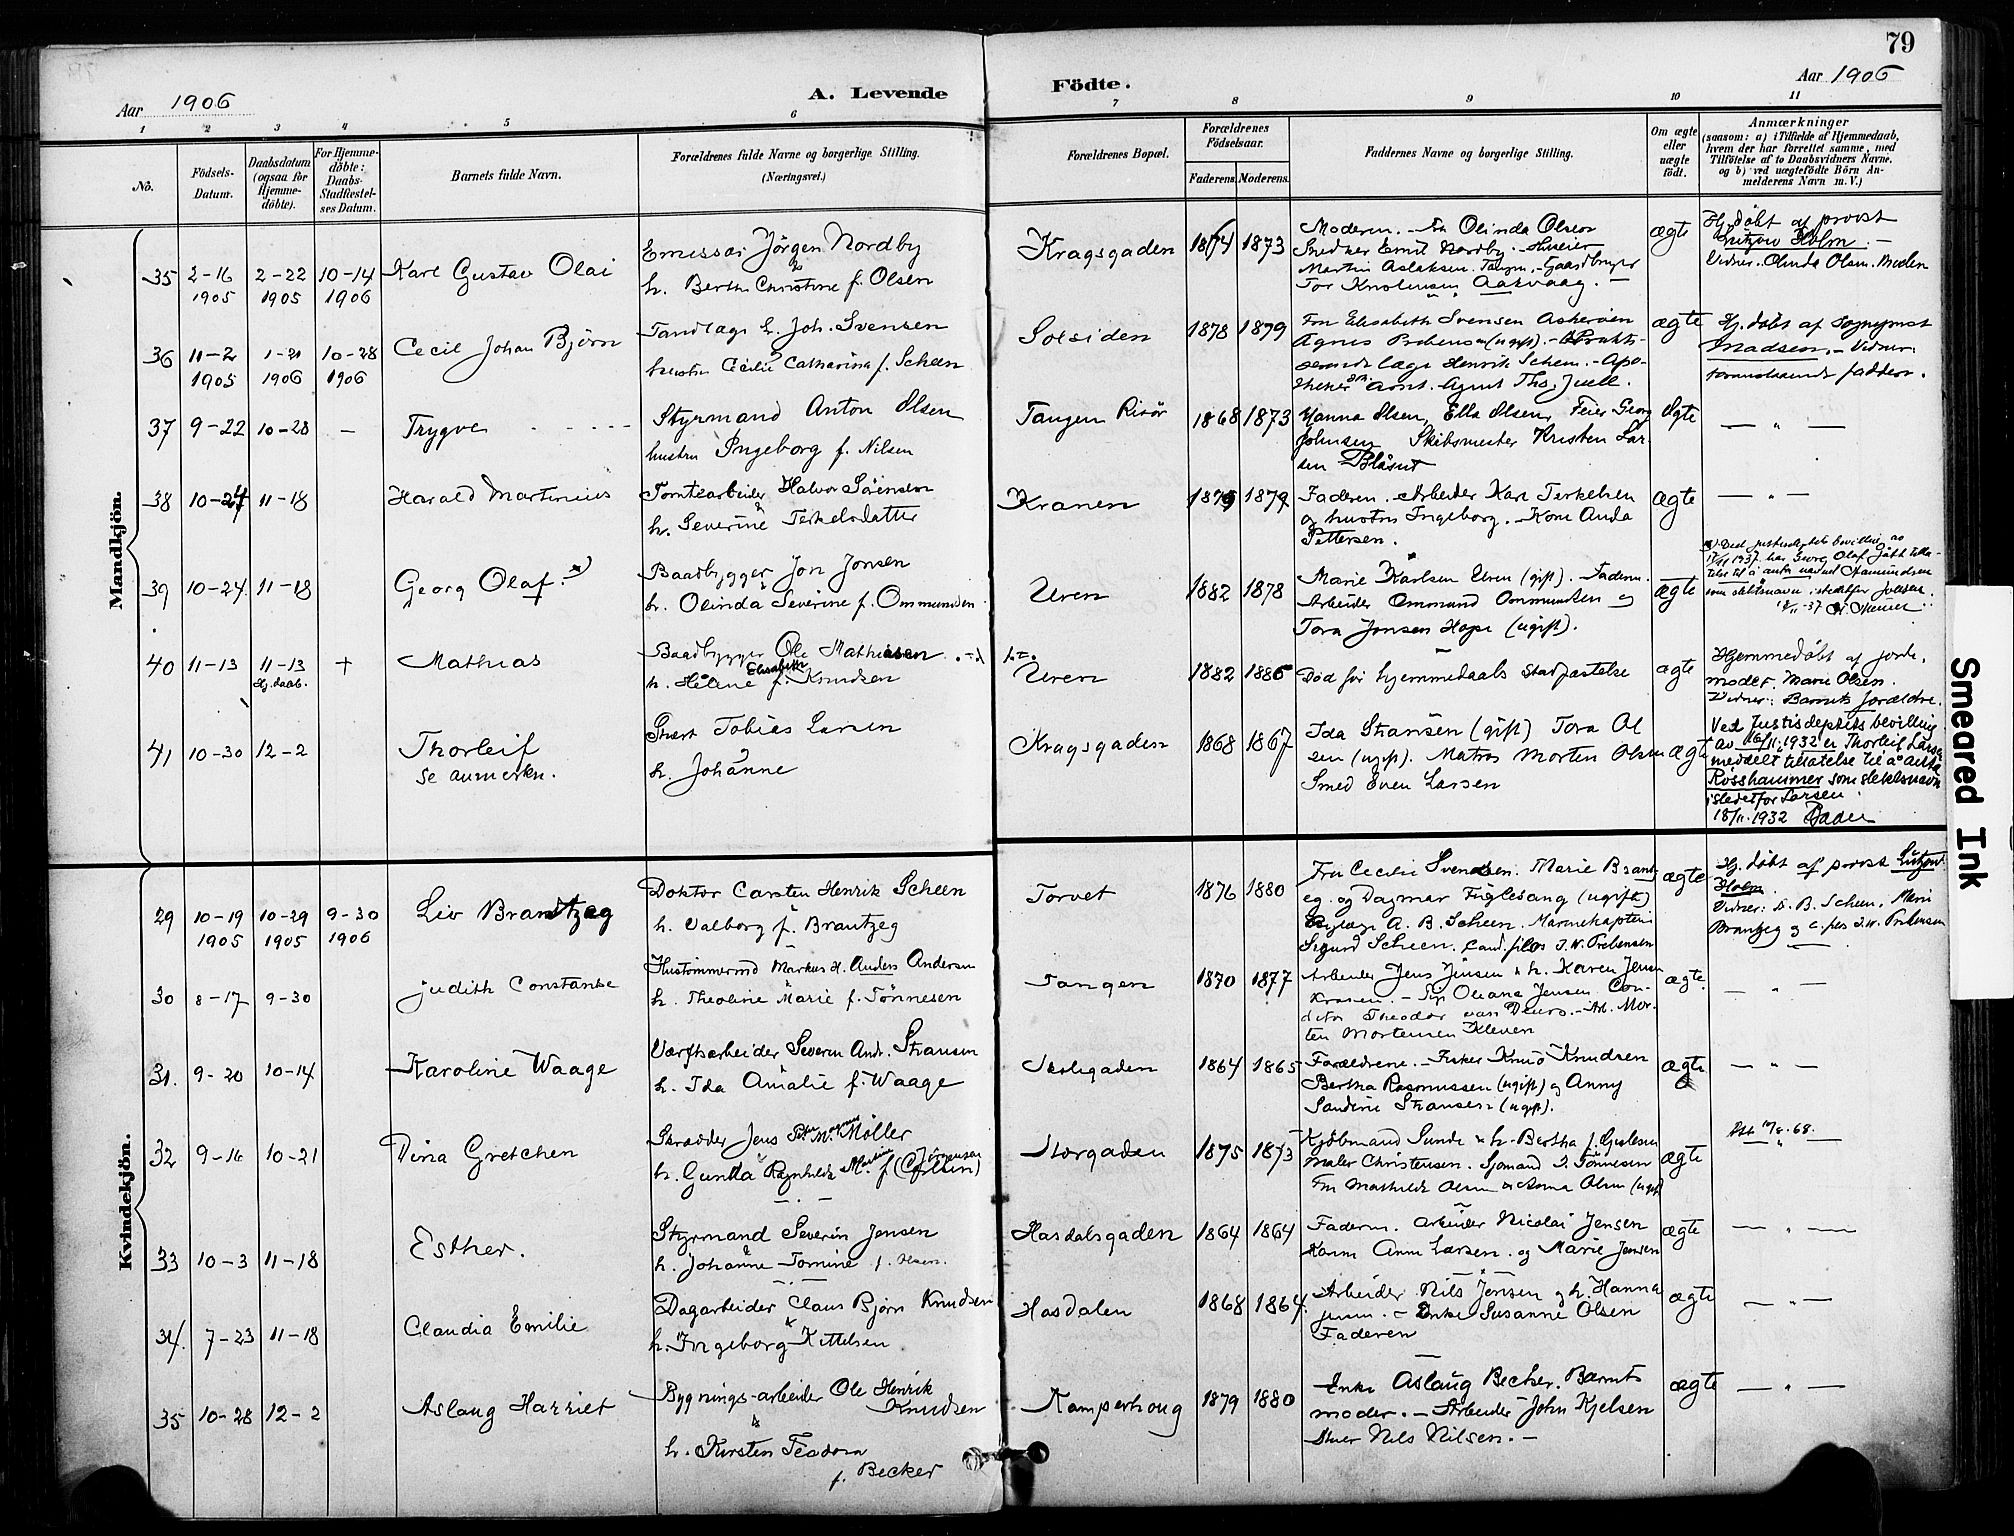 79
Aar 1906
A. Levende
Födte.
Aar 1906
1 2 3 4 5 6 7 8 9 10 11
No.
Födsels-Datum.
Daabsdatum (ogsaa for Hjemme-döbte).
For Hjemme-döbte: Daabs-Stadfæstel-ses Datum.
Barnets fulde Navn.
Forældrenes fulde Navne og borgerlige Stilling.
(Næringsvei.)
Forældrenes Bopæl.
Forældrenes Födselsaar.
Faderens. Moderens.
Faddernes Navne og borgerlige Stilling.
Om ægte eller uægte födt.
Anmærkninger
(saasom: a) i Tilfælde af Hjemmedaab, hvem der har forrettet samme, med Tilföielse af to Daabsvidners Navne, og b) ved uægtefödte Börn An-melderens Navn m. V.)
Mandkjön.
35 2-16 1905 2-22 1905 10-14 1906 Karl Gustav Olai
Emissær Jörgen Nordby
h. Berthe Christine f. Olsen
Kragsgaden 1874 1873
Moderen. - Olinda Olsen
Snedker Nordby.
Martin Aslaksen. Tangen. - Gaardbruger
Tor Knutsen Aarvaag. -
ægte
Hj. döbt af provst
Lützow Holm. -
Vidner. Olinda Olsen. Moderen
36 11-2 1905 1-21 1906 10-28 1906 Cecil Johan Björn
Tandlæge h. Joh. Svensen
hustru Cecilie Catharina f. Scheen
Solsiden 1878 1879
Fru Elisabeth Svensen Askerøen
Agnes Prebensen (ugift). - Prakti-
serende læge Henrik Scheen. - Apo-
theker Arnt. Agent Ths. Juell.
ægte
Hj. döbt af Sogneprest
Madsen. - Vidner:
foranstaaende faddere.
37 9-22 10-28 - Trygve
Styrmand Anton Olsen
hustru Ingeborg f. Nilsen
Tangen Risör 1868 1873
Hanna Olsen, Ella Olsen, Feier Georg
Johnsen Skibsmester Kristen Lar-
sen Blåsut
Ægte
- " -
38 10-24 11-18 Harald Martinius
Tomtearbeider Halvor Sörensen
&
h. Severine Terkelsdatter
Kranen 1875 1879
Faderen. Arbeider Karl Terkelsen
og hustru Ingeborg. - Kone Anda
Pettersen.
ægte
- " -
39 10-24 11-18 Georg Olaf. x)
Baadbygger Jon Jonsen
h. Olinda Severine f. Ommundsen
Uren 1882 1878
Marie Karlsen Uren (gift). Faderen.
Arbeider Ommund Ommundsen og
Tora Jonsen Hope (ugift).
ægte
x) Ved justisdep.tets bevilling av
17/11 1937 har Georg Olaf fått tilla-
telse til å anta navnet Aamundsen
som slektsnavn istedetfor Jonsen.
40 11-13 11-13 Hj. daab. + Mathias
Baadbygger Ole Mathiesen
h. Helene Elisabeth f. Knudsen
Uren 1882 1886
Död för hjemmedaabs Stadfæstelse
ægte
Hjemmedöbt af jorde-
moder. Marie Olsen.
Vidner: Barnets forældre.
41 10-30 12-2 Thorleif
se anmerkn.
Tobias Larsen
h. Johanne
Kragsgaden 1868 1867
Ida Stransen (gift) Tora Ol
sen (ugift). Matros Morten Olsen
Smed Even Larsen
ægte
Ved Justisdeptets bevilling
av 16/11 1932 er Thorleif Larsen
meddelt tillatelse til å anta
Rosshammer som slektsnavn
istedetfor Larsen.
18/11. 1932
Kvindekjön.
29 10-19 1905 10-29 1905 9-30 1906 Liv Brantzeg
Doktor Carsten Henrik Scheen
h. Valborg f. Brantzeg
Torvet 1876 1880
Fru Cecilie Svendsen. Marie Brantz
eg. og Dagmar Fuglesang (ugifte)
Bylæge A. B. Scheen. Marinekaptein
Sigurd Scheen. Cand. filos J. W. Prebensen
ægte
Hj. döbt af provst Lützow
Holm.
Vidner: A. B. Scheen. Marie
Brantzeg og c. filos J. W. Prebensen
30 8-17 9-30 Judith Constanse
Hustömmermd Markus H. Anders Andersen
h. Theoline Marie f. Tönnesen
Tangen 1870 1877
Arbeider Jens Jensen & h. Karen Jensen
Kranen. - Oleana Jensen. Con-
ditor Theodor van Deurs. - Arb. Mor-
ten Mortensen Kleven
ægte.
- " -
31. 9-20 10-14 Karoline Waage
Værftsarbeider Severin Andr. Stransen
h. Ida Amalie f. Waage
Skolegaden 1864 1865
Forældrene. - Fisker Knud Knudsen
Bertha Rasmussen (ugift) og Anny
Sandrine Stransen (ugift).
ægte
- " -
32 9-16 10-21 Dina Gretchen
Skrædder Jens Peter M. Møller
h. Gunda Ragnhilde Martine f. Jörgensen
Storgaden 1875 1873
Kjöbmand Sunde & h. Bertha f.
Maler Christensen. Sjömand J. Tönnesen
Fru Mathilde Olsen & Anna Olsen (ugift)
ægte
- " -
33 10-3 11-18 Esther.
Styrmand Severin Jensen
h. Johanne Tomine f. Olsen.
Hasdalsgaden 1864 1864
Faderen. Arbeider Nicolai Jensen
Karen Anne Larsen. og Marie Jensen
ægte
- " -
34. 7-23 11-18 Claudia Emilie
Dagarbeider Claus Bjørn Knudsen
&
h. Ingeborg Kittelsen
Hasdalen 1868 1864.
Arbeider Nils Jensen og h. Hanna
Jensen. - Enke Susanne Olsen
Faderen
ægte
- " -
35 10-28 12-2 Aslaug Harriet
Bygnings-arbeider Ole Henrik
Knudsen
&
h. Kirsten Teodora
f. Becker
Kamperhoug 1879 1880
Enke Aslaug Becker. Barnets
moder. - Arbeider John Kjelsen
Nils Nilsen. -
ægte
- " -
Smeared Ink